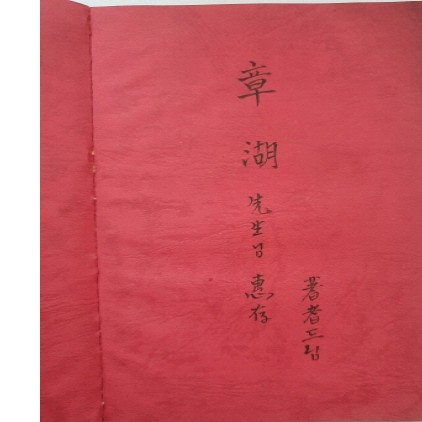 章湖先生님惠存
著者드림